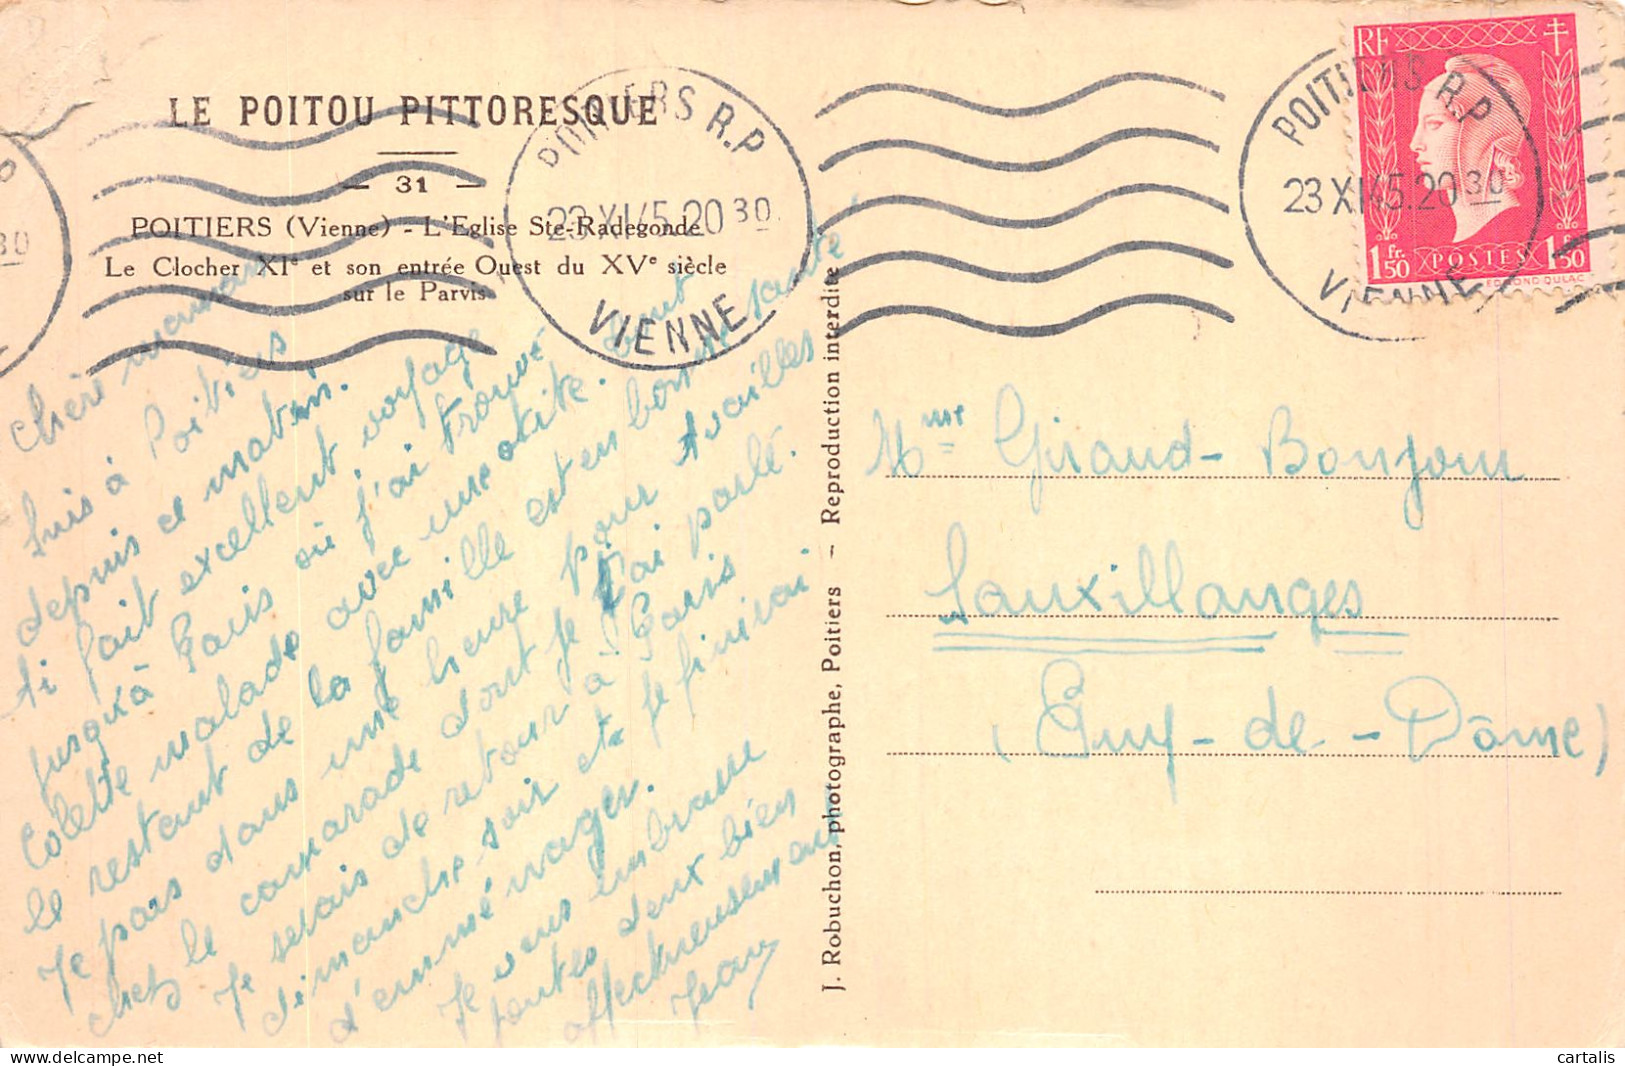 LE POITOU PITTORESQUE
— 31 —
POITIERS (Vienne) - L'Eglise Ste-Radegonde
Le Clocher XIe et son entrée Ouest du XVe siècle
sur le Parvis
POITIERS R.P
23 XI 45.20 30
VIENNE
POITIERS R.P
23 XI 45.20 30
VIENNE
RF
1 fr. 50 POSTES 1 f. 50
EDMOND DULAC
Chère maman
Suis à Poitiers
depuis ce matin.
Ai fait excellent voyage
jusqu'à Paris où j'ai trouvé
Colette malade avec une otite. Tout
le restant de la famille est en bonne santé.
Je pars dans une heure pour Availles
chez le camarade dont je t'ai parlé.
Je serais de retour à Paris
dimanche soir et je finirai
d'emménager.
Je vous embrasse
toutes deux bien
affectueusement
Jean
J. Robuchon, photographe, Poitiers — Reproduction interdite
Mme Giraud-Bonjour
Sauxillanges
(Puy-de-Dôme)
cartalis